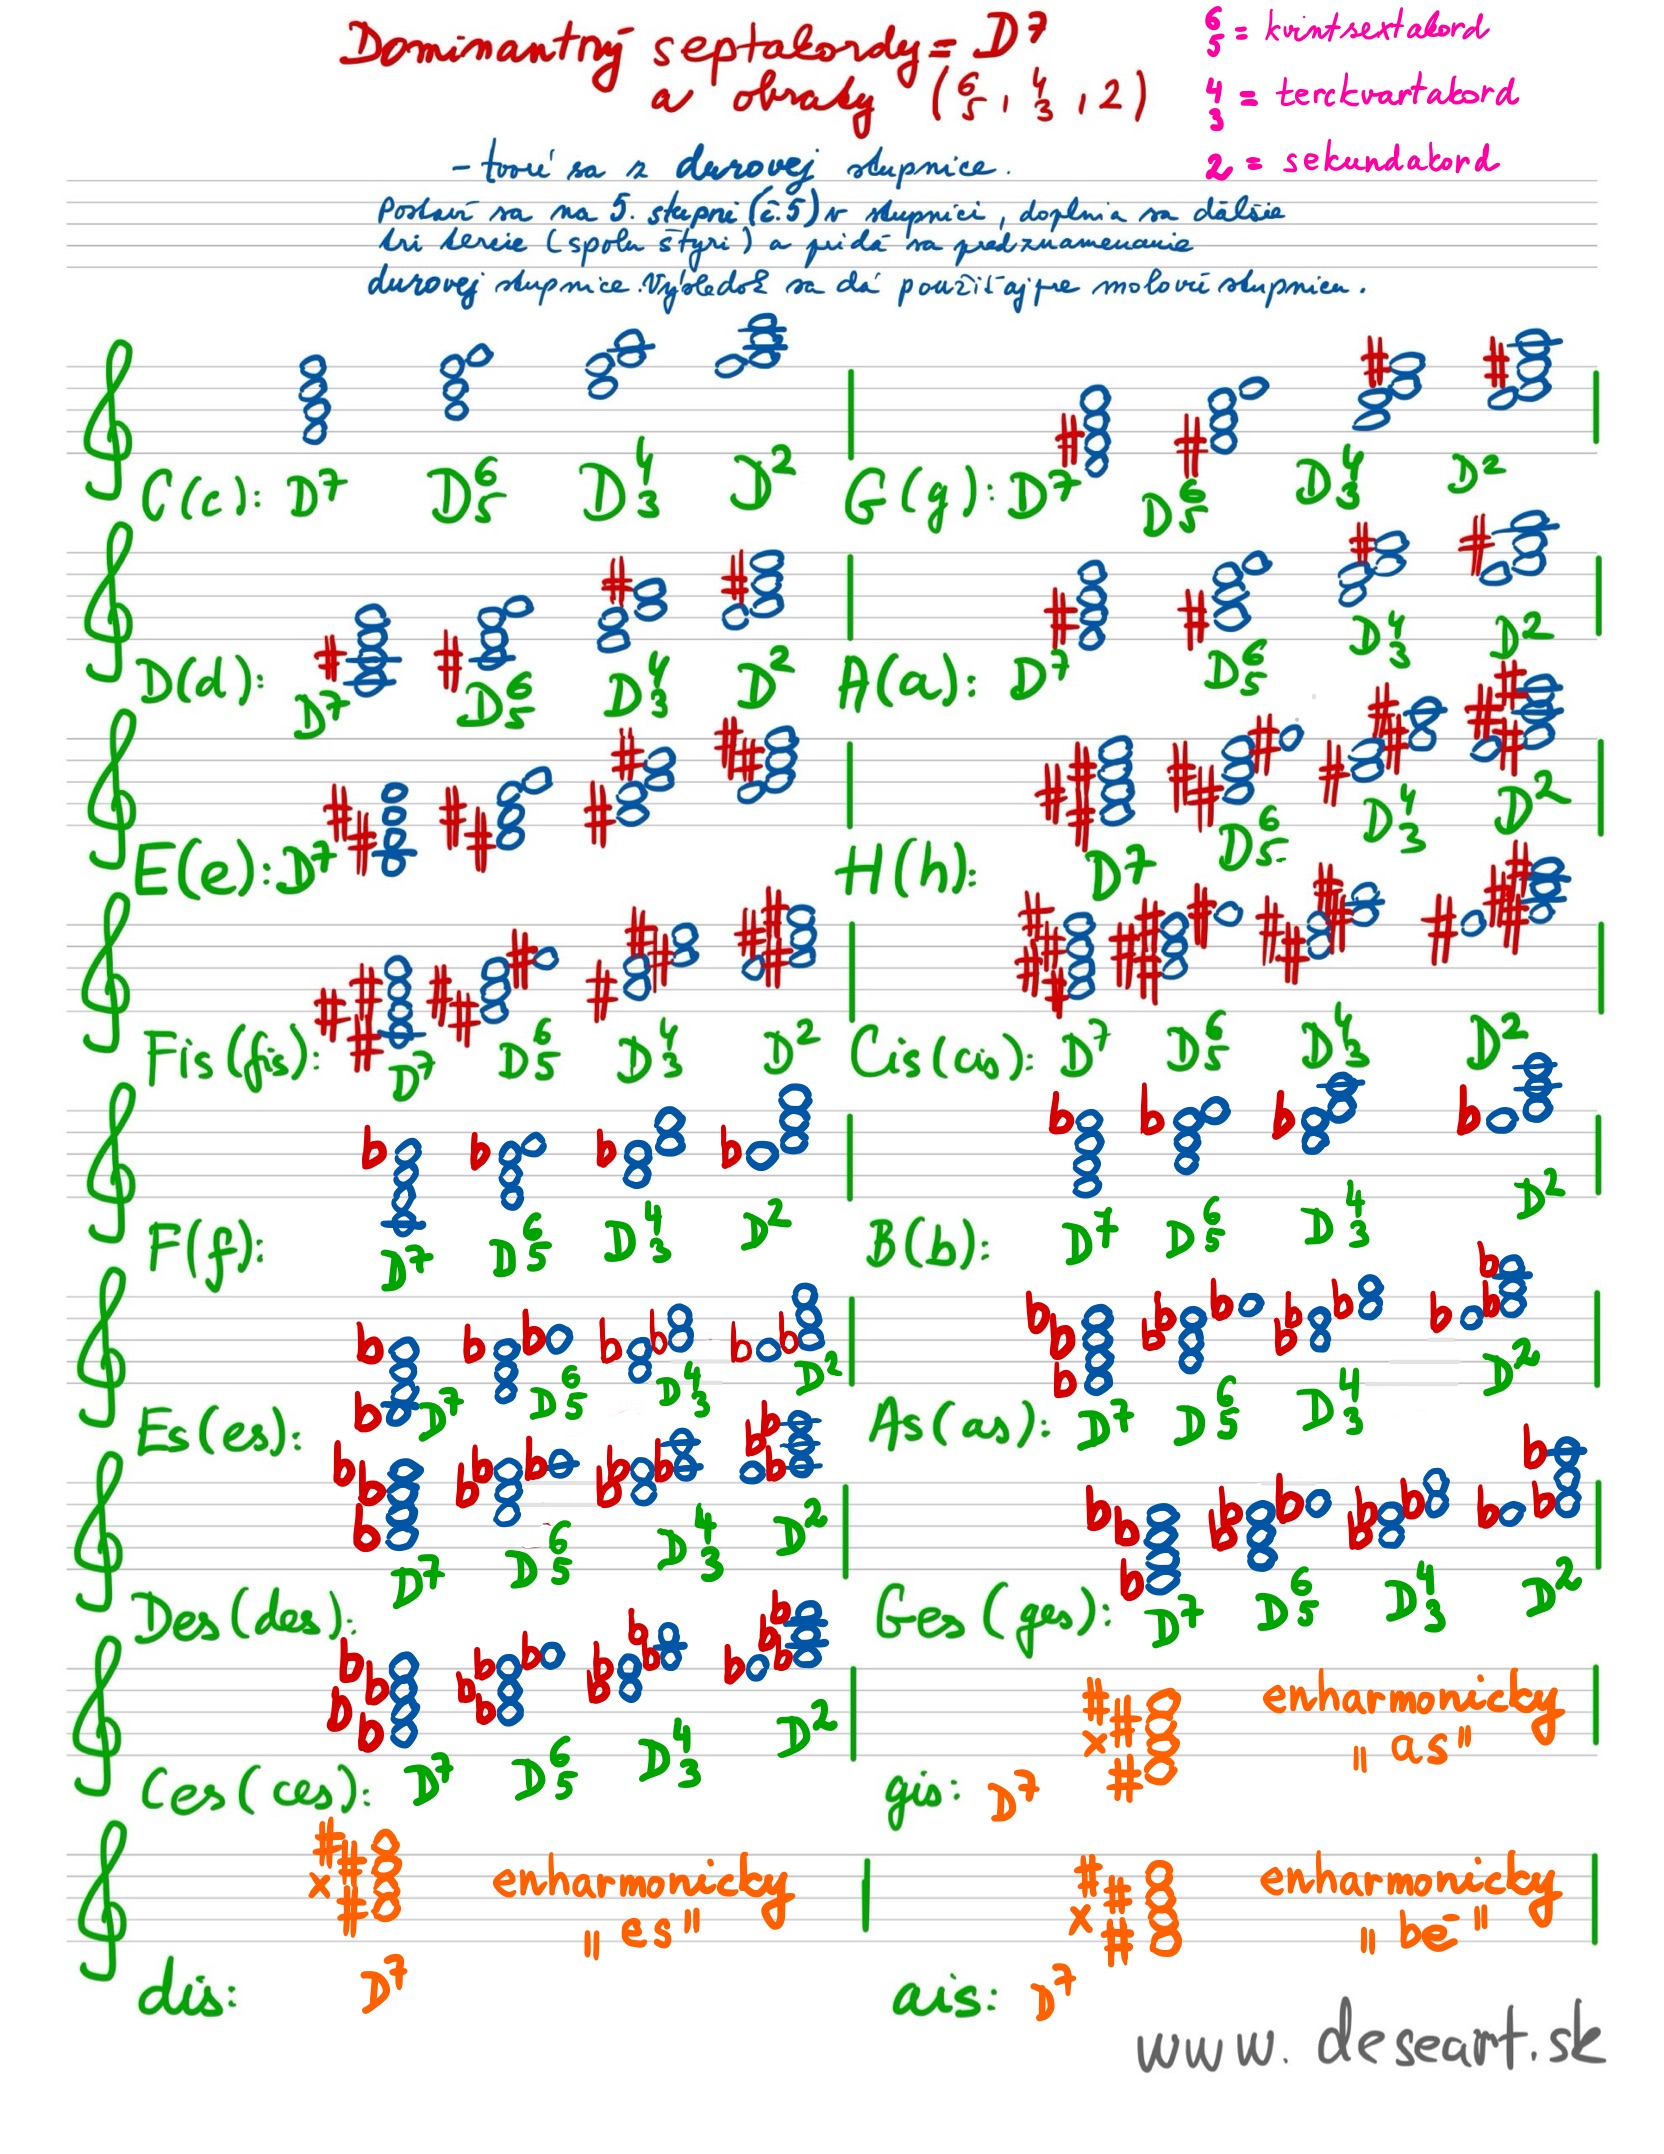 Dominantný septakordy = D7
a obraty (6 5, 4 3, 2)
6 5 = kvintsextakord
4 3 = terckvartakord
2 = sekundakord
- tvorí sa z durovej stupnice.
Postaví sa na 5. stupni (č.5) v stupnici, doplnia sa ďalšie
tri tercie (spolu štyri) a pridá sa predznamenanie
durovej stupnice. Výsledok sa dá použiť aj pre molovú stupnicu.
C(c): D7 D6 5 D4 3 D2 G(g): D7 D6 5 D4 3 D2
D(d): D7 D6 5 D4 3 D2 A(a): D7 D6 5 D4 3 D2
E(e): D7 H(h): D7 D6 5 D4 3 D2
Fis(fis): D7 D6 5 D4 3 D2 Cis(cis): D7 D6 5 D4 3 D2
F(f): D7 D6 5 D4 3 D2 B(b): D7 D6 5 D4 3 D2
Es(es): D7 D6 5 D4 3 D2 As(as): D7 D6 5 D4 3 D2
Des(des): D7 D6 5 D4 3 D2 Ges(ges): D7 D6 5 D4 3 D2
Ces(ces): D7 D6 5 D4 3 D2 gis: D7 enharmonicky
"as"
dis: D7 enharmonicky
"es"
ais: D7 enharmonicky
"bé"
www.deseart.sk